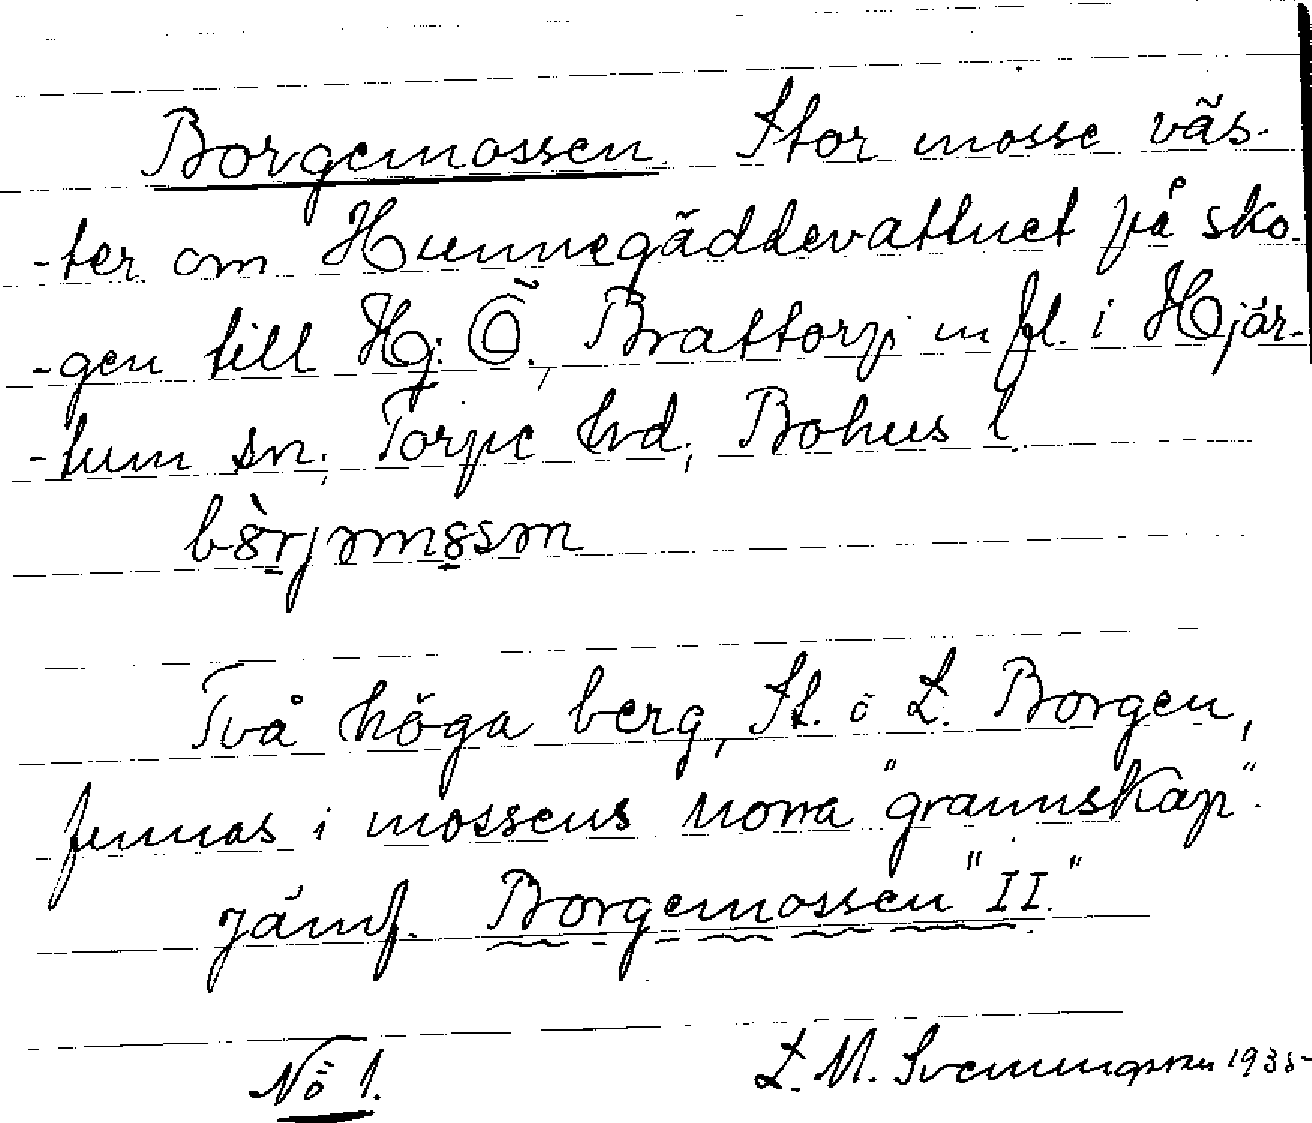 Borgemossen. Stor mosse väs-
-ter om Hunnegäddevattnet på sko-
-gen till Hg: Ö., Brattorp m fl. i Hjär-
-tum sn; Torpe hd; Bohus l.
Två höga berg, St. o L. Borgen,
finnas i mossens norra "grannskap".
jämf. Borgemossen "II."
No 1. L. M. Svenungsson